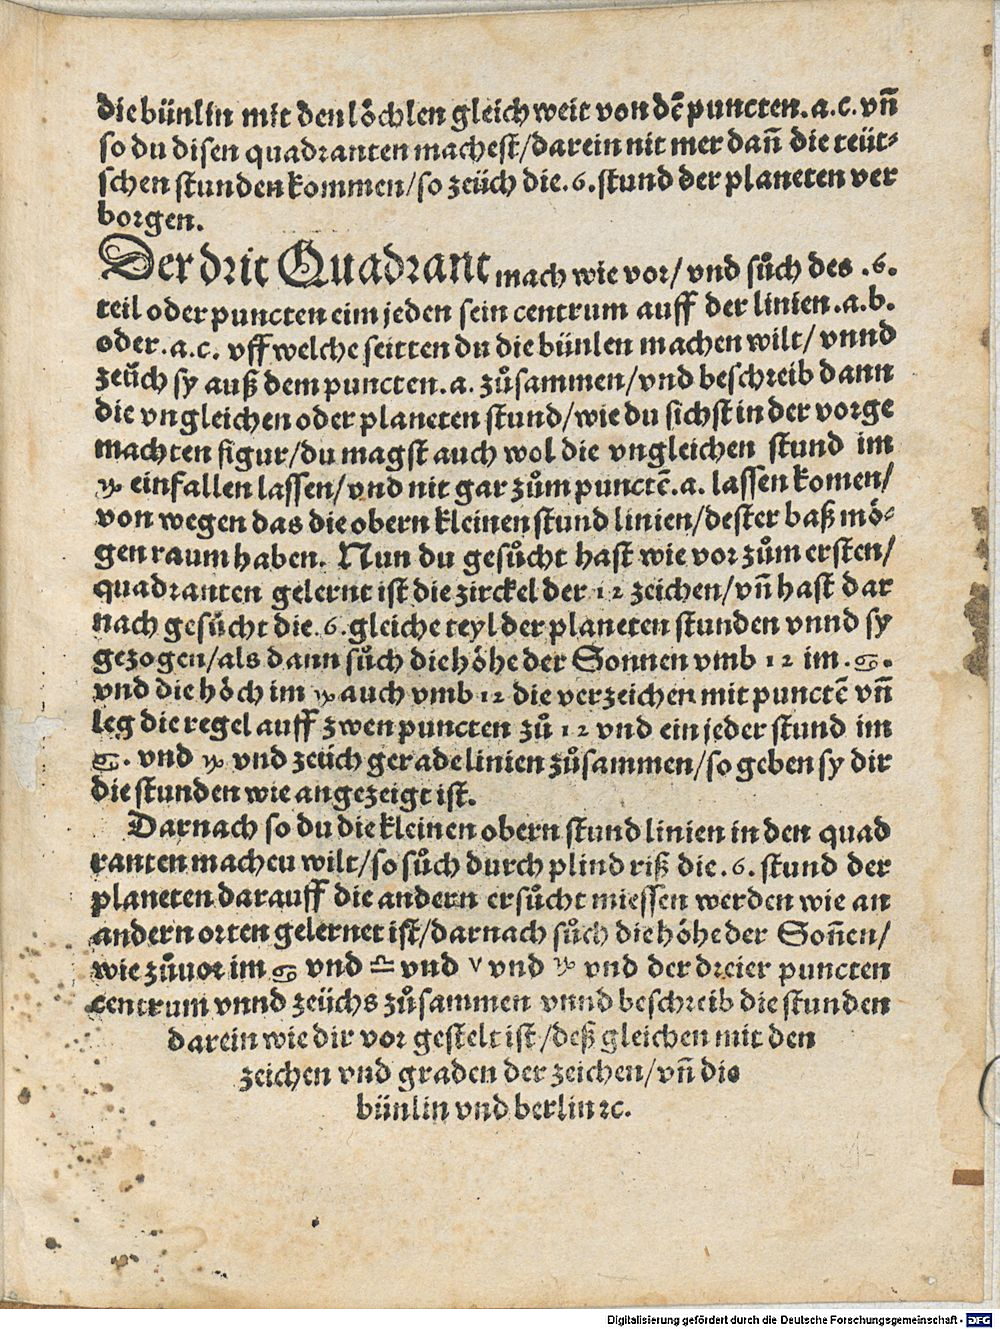 die bünlin mit den löchlen gleich weit von dē puncten.a.c. vñ
so du disen quadranten machest/darein nit mer dañ die teüt-
schen stunden kommen/so zeüch die.6.stund der planeten ver
borgen.
Der drit Quadrant mach wie vor/ vnd sůch des .6.
teil oder puncten eim jeden sein centrum auff der linien .a.b.
oder.a.c. vff welche seitten du die bünlen machen wilt/ vnnd
zeüch sy auß dem puncten.a. zůsammen/vnd beschreib dann
die vngleichen oder planeten stund/wie du sichst in der vorge
machten figur/du magst auch wol die vngleichen stund im
♑ einfallen lassen/vnd nit gar zům punctē.a. lassen komen/
von wegen das die obern kleinen stund linien/dester baß mö-
gen raum haben. Nun du gesůcht hast wie vor zům ersten/
quadranten gelernt ist die zirckel der 12 zeichen/vñ hast dar
nach gesůcht die.6.gleiche teyl der planeten stunden vnnd sy
gezogen/als dann sůch die höhe der Sonnen vmb 12 im.♋.
vnd die höch im ♑ auch vmb 12 die verzeichen mit punctē vñ
leg die regel auff zwen puncten zů 12 vnd ein jeder stund im
♋. vnd ♑ vnd zeüch gerade linien zůsammen/so geben sy dir
die stunden wie angezeigt ist.
Darnach so du die kleinen obern stund linien in den quad
ranten macheu wilt/so sůch durch plind riß die.6.stund der
planeten darauff die andern ersůcht miessen werden wie an
andern orten gelernet ist/darnach sůch die höhe der Soñen/
wie zůuor im ♋ vnd ♎ vnd ♈ vnd ♑ vnd der dreier puncten
centrum vnnd zeüchs zůsammen vnnd beschreib die stunden
darein wie dir vor gestelt ist/deß gleichen mit den
zeichen vnd graden der zeichen/vñ die
bünlin vnd berlin ꝛc.
Digitalisierung gefördert durch die Deutsche Forschungsgemeinschaft - DFG